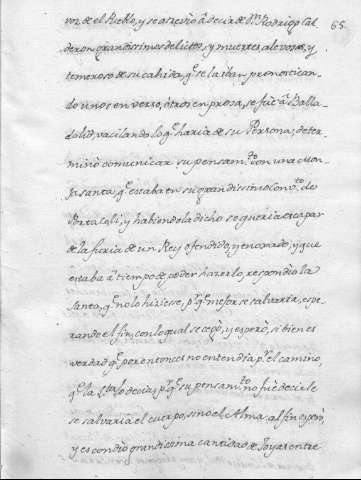 voz de el Pueblo, y se atrevio â decir de Dn. Rodrigo Cal
65
deron grandissimos delictos, y muertes alevosas, y
temeroso de su cahida, q.e se la iban pronostican-
do unos en verso, ôtros en prosa, se fuè â Valla-
dolid, vacilando lo q.e haria de su Persona; deter-
minò comunicar su pensam.to con una Mon-
ja santa, q.e estaba en su grandissimo Conv.to de
Portaceli, y habiendola dicho se queria escapar
de la furia de un Rey ofendido, y enojado, y que
estaba â tiempo de poder hazerlo, respondio la
Santa, q.e no lo hiziesse, p.r q.e mejor se salvaria, espe-
rando el fin, con lo qual se cegò, y esperò, si bien es
verdad q.e por entonces no entendia p.r el camino,
q.e la S.ta lo decia, p.r q.e su pensam.to no fue decirle
se salvaria el cuerpo, sino el Alma: al fin esperò,
y escondio grandissima cantidad de Joyas entre